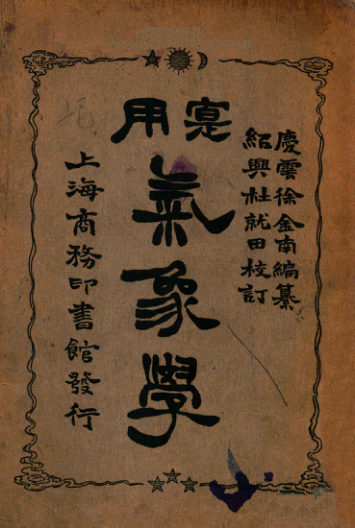 慶雲徐金南編纂
紹興杜就田校訂
寔用
氣象學
上海商務印書館發行